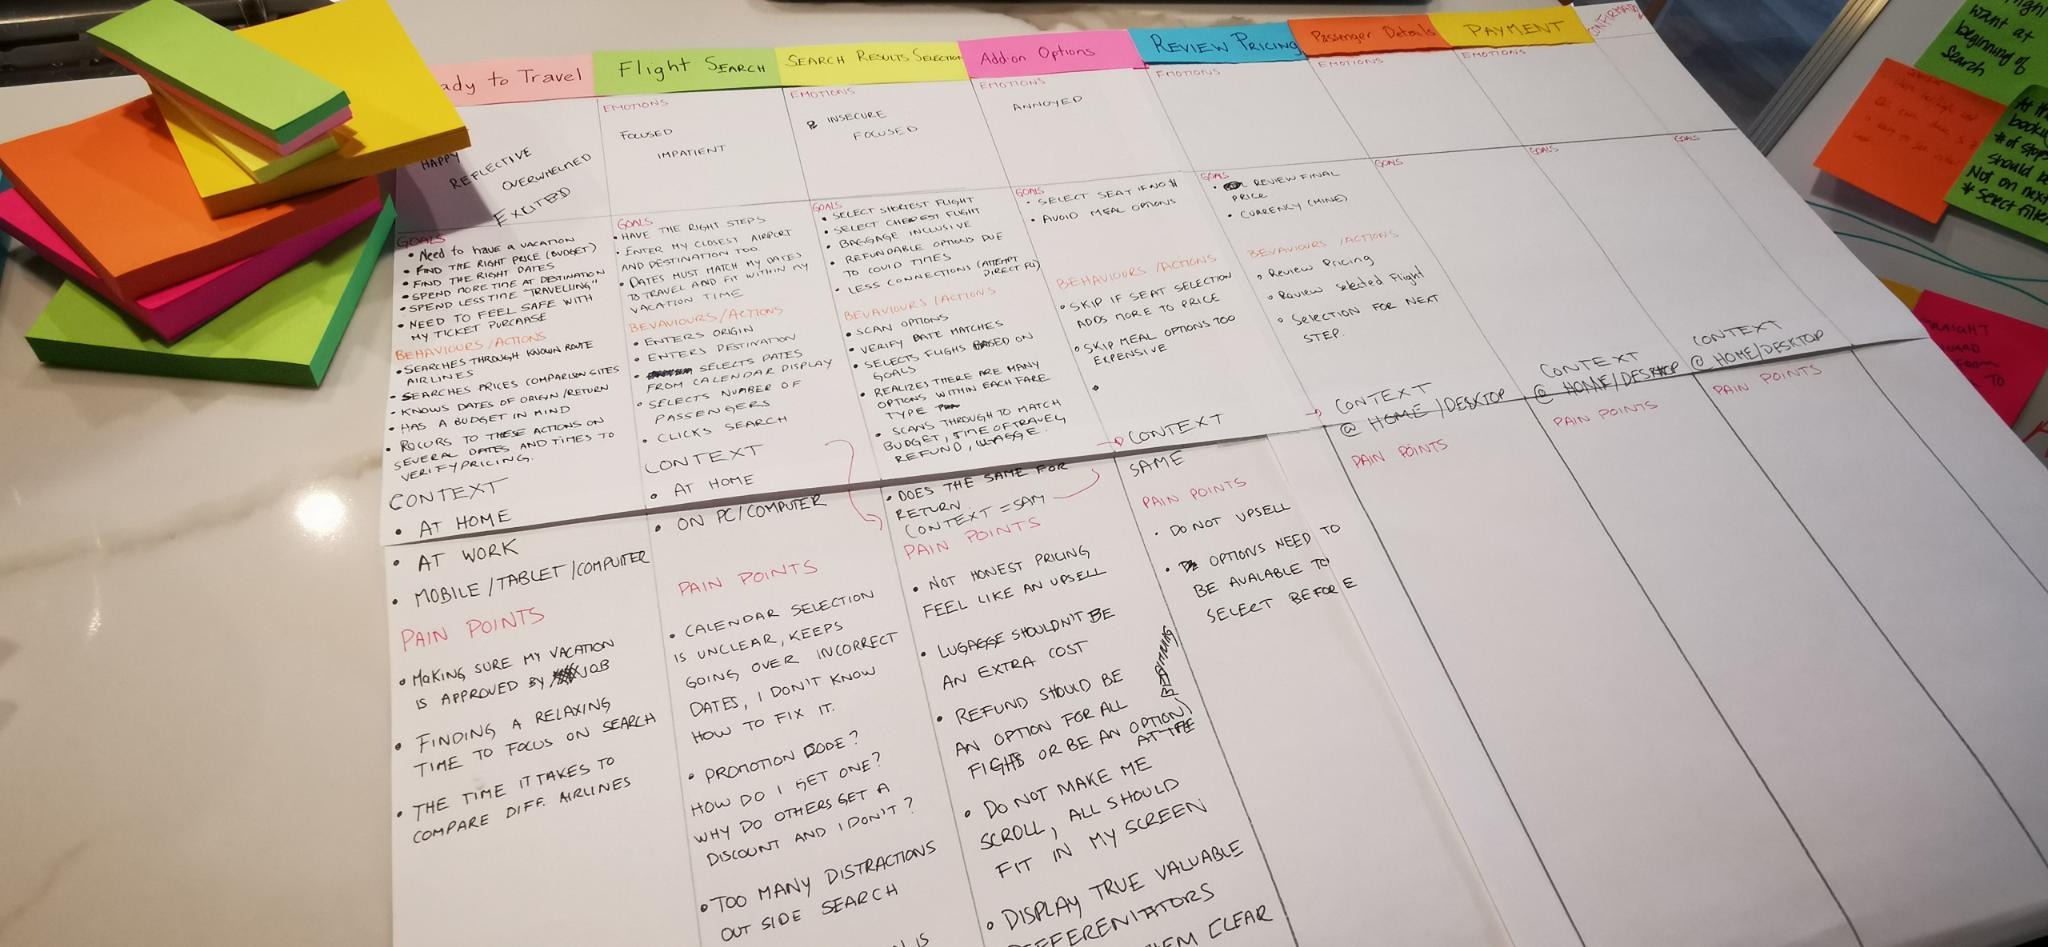 ady to Travel
HAPPY
REFLECTIVE
OVERWHELMED
EXCITED
GOALS
• Need to have a VACATION
• FIND THE RIGHT PRICE (BUDGET)
• FIND THE RIGHT DATES
• SPEND MORE TIME AT DESTINATION
• SPEND LESS TIME "TRAVELLING"
• NEED TO FEEL SAFE WITH
MY TICKET PURCAASE
BEHAVIOURS/ACTIONS
• SEARCHES THROUGH KNOWN ROUTE
AIRLINES
• SEARCHES PRICES COMPARISON SITES
• KNOWS DATES OF ORIGIN/RETURN
• HAS A BUDGET IN MIND
• ROCURS TO THESE ACTIONS ON
SEVERAL DATES AND TIMES TO
VERIFY PRICING.
CONTEXT
• AT HOME
• AT WORK
• MOBILE/TABLET/COMPUTER
PAIN POINTS
• MAKING SURE MY VACATION
IS APPROVED BY JOB
• FINDING A RELAXING
TIME TO FOCUS ON SEARCH
• THE TIME IT TAKES TO
COMPARE DIFF. AIRLINES
Flight SEARCH
EMOTIONS
FOCUSED
IMPATIENT
GOALS
• HAVE THE RIGHT STEPS
• ENTER MY CLOSEST AIRPORT
AND DESTINATION TOO.
• DATES MUST MATCH MY DATES
TO TRAVEL AND FIT WITHIN MY
VACATION TIME
BEVAVIOURS/ACTIONS
• ENTERS ORIGIN
• ENTERS DESTINATION
• SELECTS DATES
FROM CALENDAR DISPLAY
• SELECTS NUMBER OF
PASSENGERS
• CLICKS SEARCH
CONTEXT
• AT HOME
• ON PC/COMPUTER
PAIN POINTS
• CALENDAR SELECTION
IS UNCLEAR, KEEPS
GOING OVER INCORRECT
DATES, I DON'T KNOW
HOW TO FIX IT.
• PROMOTION CODE?
HOW DO I GET ONE?
WHY DO OTHERS GET A
DISCOUNT AND I DON'T?
• TOO MANY DISTRACTIONS
OUT SIDE SEARCH
IS
SEARCH RESULTS SELECTION
EMOTIONS
INSECURE
FOCUSED
GOALS
• SELECT SHORTEST FLIGHT
• SELECT CHEAPEST FLIGHT
• BAGGAGE INCLUSIVE
• REFUNDABLE OPTIONS DUE
TO COVID TIMES
• LESS CONNECTIONS (ATTEMPT
DIRECT FLI)
BEVAVIOURS/ACTIONS
• SCAN OPTIONS
• VERIFY DATE MATCHES
• SELECTS FLIGHS BASED ON
GOALS
• REALIZES THERE ARE MANY
OPTIONS WITHIN EACH FARE
TYPE
• SCANS THROUGH TO MATCH
BUDGET, TIME OF TRAVEL
REFUND, LUGAGGE.
• DOES THE SAME FOR
RETURN.
CONTEXT = SAM
PAIN POINTS
• NOT HONEST PRICING
FEEL LIKE AN UPSELL
• LUGAGGE SHOULDN'T BE
AN EXTRA COST
• REFUND SHOULD BE
AN OPTION FOR ALL
FIGHS OR BE AN OPTION)
AT THE
BEGINNING
• DO NOT MAKE ME
SCROLL, ALL SHOULD
FIT IN MY SCREEN
• DISPLAY TRUE VALUABLE
DIFFERENTIATORS
CLEAR
Add-on Options
EMOTIONS
ANNOYED
GOALS
• SELECT SEAT IF NO $
• AVOID MEAL OPTIONS
BEHAVIOURS/ACTIONS
• SKIP IF SEAT SELECTION
ADDS MORE TO PRICE
• SKIP MEAL OPTIONS TOO
EXPENSIVE
•
→ CONTEXT
SAME
PAIN POINTS
• DO NOT UPSELL
• OPTIONS NEED TO
BE AVALABLE TO
SELECT BEFORE
REVIEW PRICING
EMOTIONS
GOALS
• REVIEW FINAL
PRICE
• CURRENCY (MINE)
BEVAVIOURS/ACTIONS
• Review Pricing
• Review Selected Flight
• Selection FOR NEXT
STEP.
→ CONTEXT
@ HOME/DESKTOP
PAIN POINTS
Passenger Details
EMOTIONS
GOALS
CONTEXT
@ HOME/DESKTOP
PAIN POINTS
PAYMENT
EMOTIONS
GOALS
CONTEXT
@ HOME/DESKTOP
PAIN POINTS
GOALS
want at
beginning of
Search
# of stops
should be
Not on next
* Select Filter